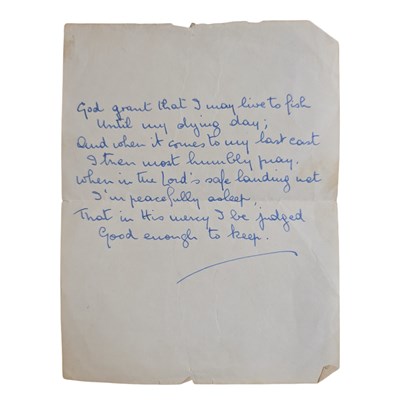 God grant that I may live to fish
Until my dying day;
And when it comes to my last cast
I then most humbly pray.
When in the Lord's safe landing net
I'm peacefully asleep,
That in His mercy I be judged
Good enough to keep.